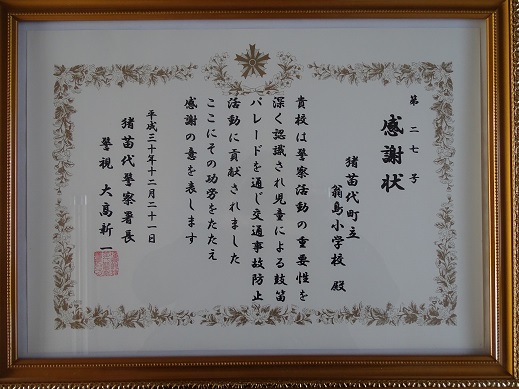 第二七号
感謝状
猪苗代町立
翁島小学校 殿
貴校は警察活動の重要性を
深く認識され児童による鼓笛
パレードを通じ交通事故防止
活動に貢献されました
ここにその功労をたたえ
感謝の意を表します
平成三十年十二月二十一日
猪苗代警察署長
警視 大高新一